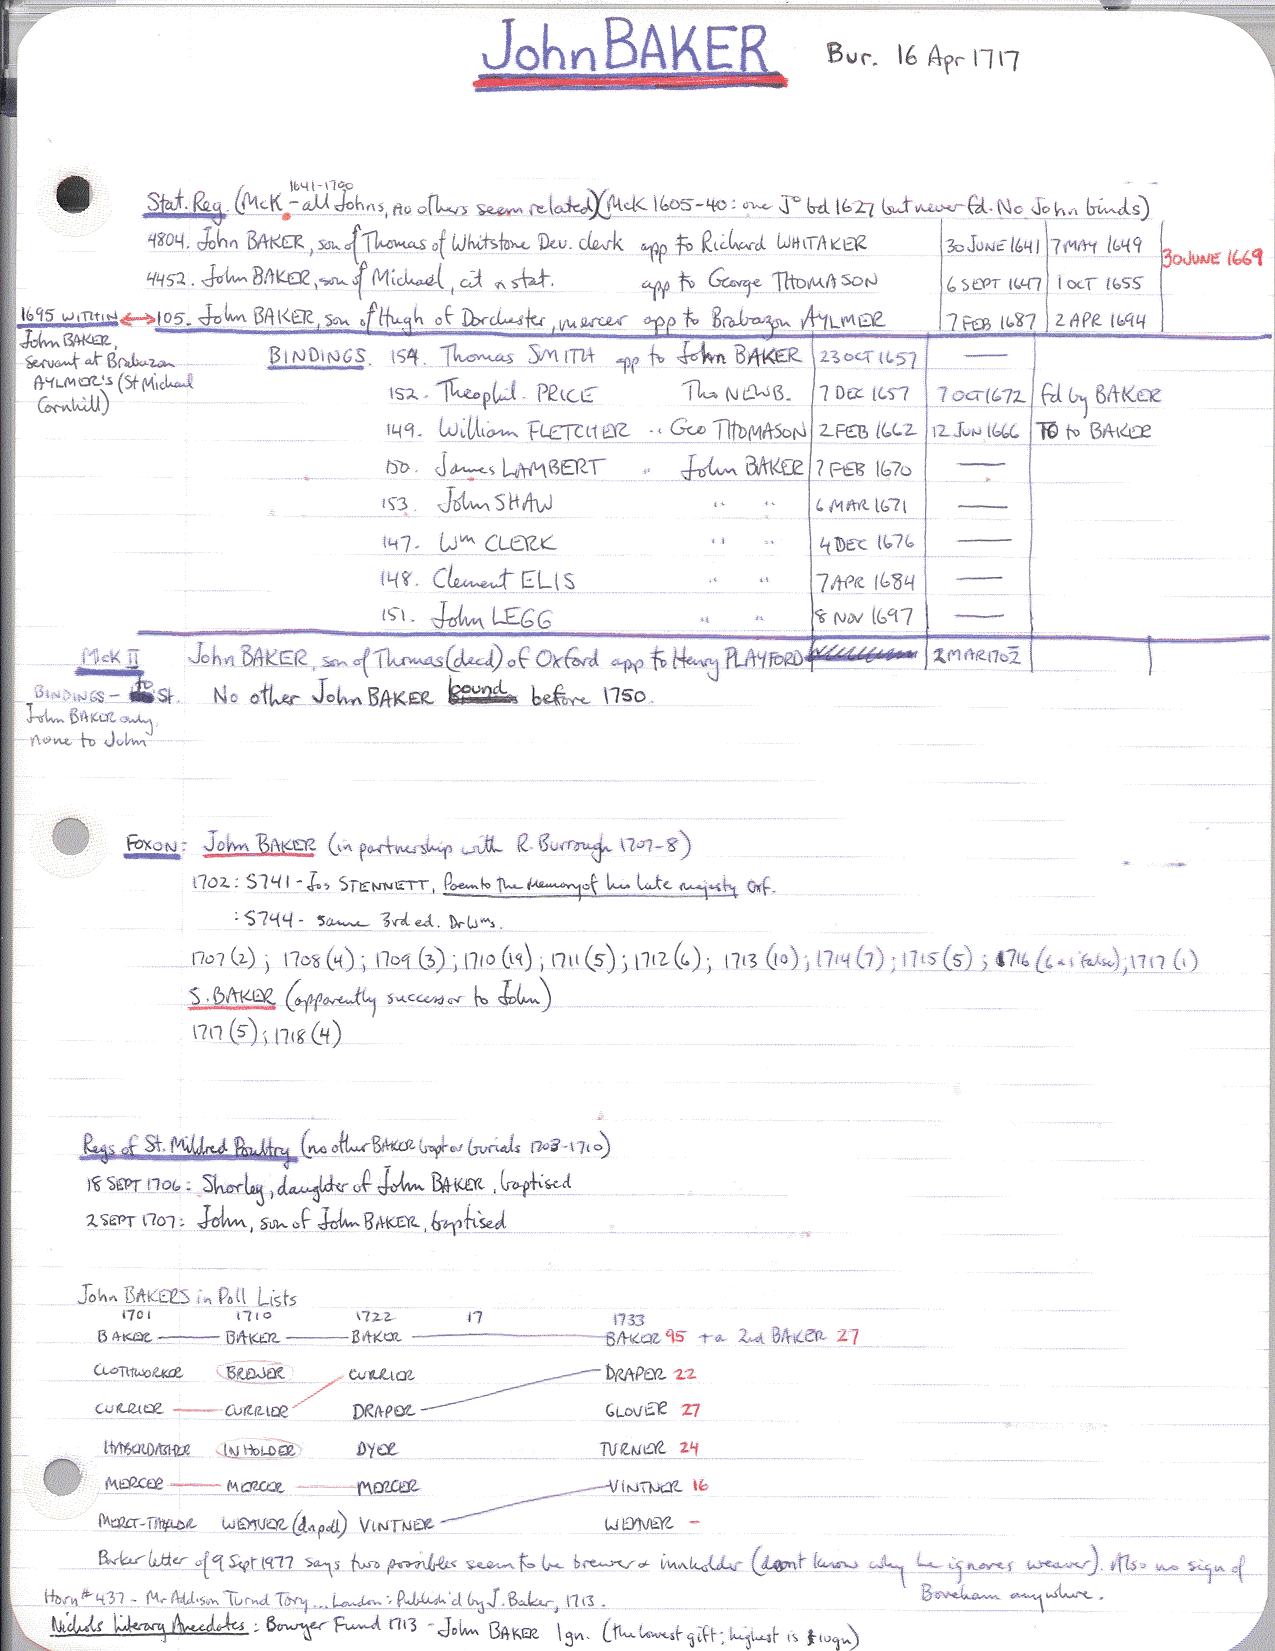 John BAKER Bur. 16 Apr 1717
1641-1700
Stat. Reg. (McK - all Johns, no others seem related) (McK 1605-40: one Jº bd 1627 but never fd. No John binds)
4804. John BAKER, son of Thomas of Whitstone Dev. clerk app to Richard WHITAKER 30 JUNE 1641 7 MAY 1649 30 JUNE 1669
4452. John BAKER, son of Michael, cit n stat. app to George THOMASON 6 SEPT 1647 1 OCT 1655
1695 WITHIN ↔ 105. John BAKER, son of Hugh of Dorchester, mercer app to Brabazon AYLMER 7 FEB 1687 2 APR 1694
John BAKER,
servant at Brabazon
AYLMER'S (St Michael
Cornhill)
BINDINGS. 154. Thomas SMITH app to John BAKER 23 OCT 1657 —
152. Theophil. PRICE Tho NEWB. 7 DEC 1657 7 OCT 1672 fd by BAKER
149. William FLETCHER " Geo THOMASON 2 FEB 1662 12 JUN 1666 TO to BAKER
150. James LAMBERT " John BAKER 7 FEB 1670 —
153. John SHAW " " 6 MAR 1671 —
147. Wm CLERK " " 4 DEC 1676 —
148. Clement ELIS " " 7 APR 1684 —
151. John LEGG " " 8 NOV 1697 —
McK II John BAKER, son of Thomas (decd) of Oxford app to Henry PLAYFORD 2 MAR 1702
BINDINGS - to St.
John BAKER only,
none to John
No other John BAKER bound before 1750.
FOXON: John BAKER (in partnership with R. Burrough 1707-8)
1702: S741 - Jos STENNETT, Poem to the Memory of his late majesty Oxf.
: S744 - same 3rd ed. DrWms.
1707 (2); 1708 (4); 1709 (3); 1710 (19); 1711 (5); 1712 (6); 1713 (10); 1714 (7); 1715 (5); 1716 (6 as 1 false); 1717 (1)
S. BAKER (apparently successor to John)
1717 (5); 1718 (4)
Regs of St. Mildred Poultry (no other BAKER bapt or burials 1703-1710)
18 SEPT 1706: Shorley, daughter of John BAKER, baptised
2 SEPT 1707: John, son of John BAKER, baptised
John BAKERS in Poll Lists
1701 1710 1722 17 1733
BAKER — BAKER — BAKER — BAKER 95 + a 2nd BAKER 27
CLOTHWORKER BREWER CURRIOR DRAPER 22
CURRIER — CURRIER DRAPER GLOVER 27
HABERDASHER INHOLDER DYER TURNER 24
MERCER — MERCER — MERCER VINTNER 16
MERCT-TAYLOR WEAVER (dn poll) VINTNER WEAVER -
Barker letter of 9 Sept 1977 says two possibles seem to be brewer & innholder (don't know why he ignores weaver). Also no sign of
Boveham anywhere.
Horn # 437 - Mr Addison Turnd Tory... London: Publish'd by J. Baker, 1713.
Nichols Literary Anecdotes: Bowyer Fund 1713 - John BAKER 1gn. (the lowest gift; highest is 10gn)